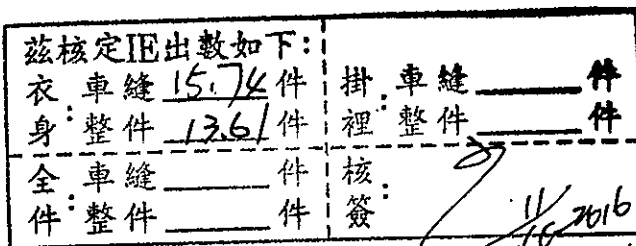 兹核定IE出數如下：
衣身：車縫 15.74 件
整件 13.61 件
掛裡：車縫 件
整件 件
全件：車縫 件
整件 件
核簽：
11/15 2016